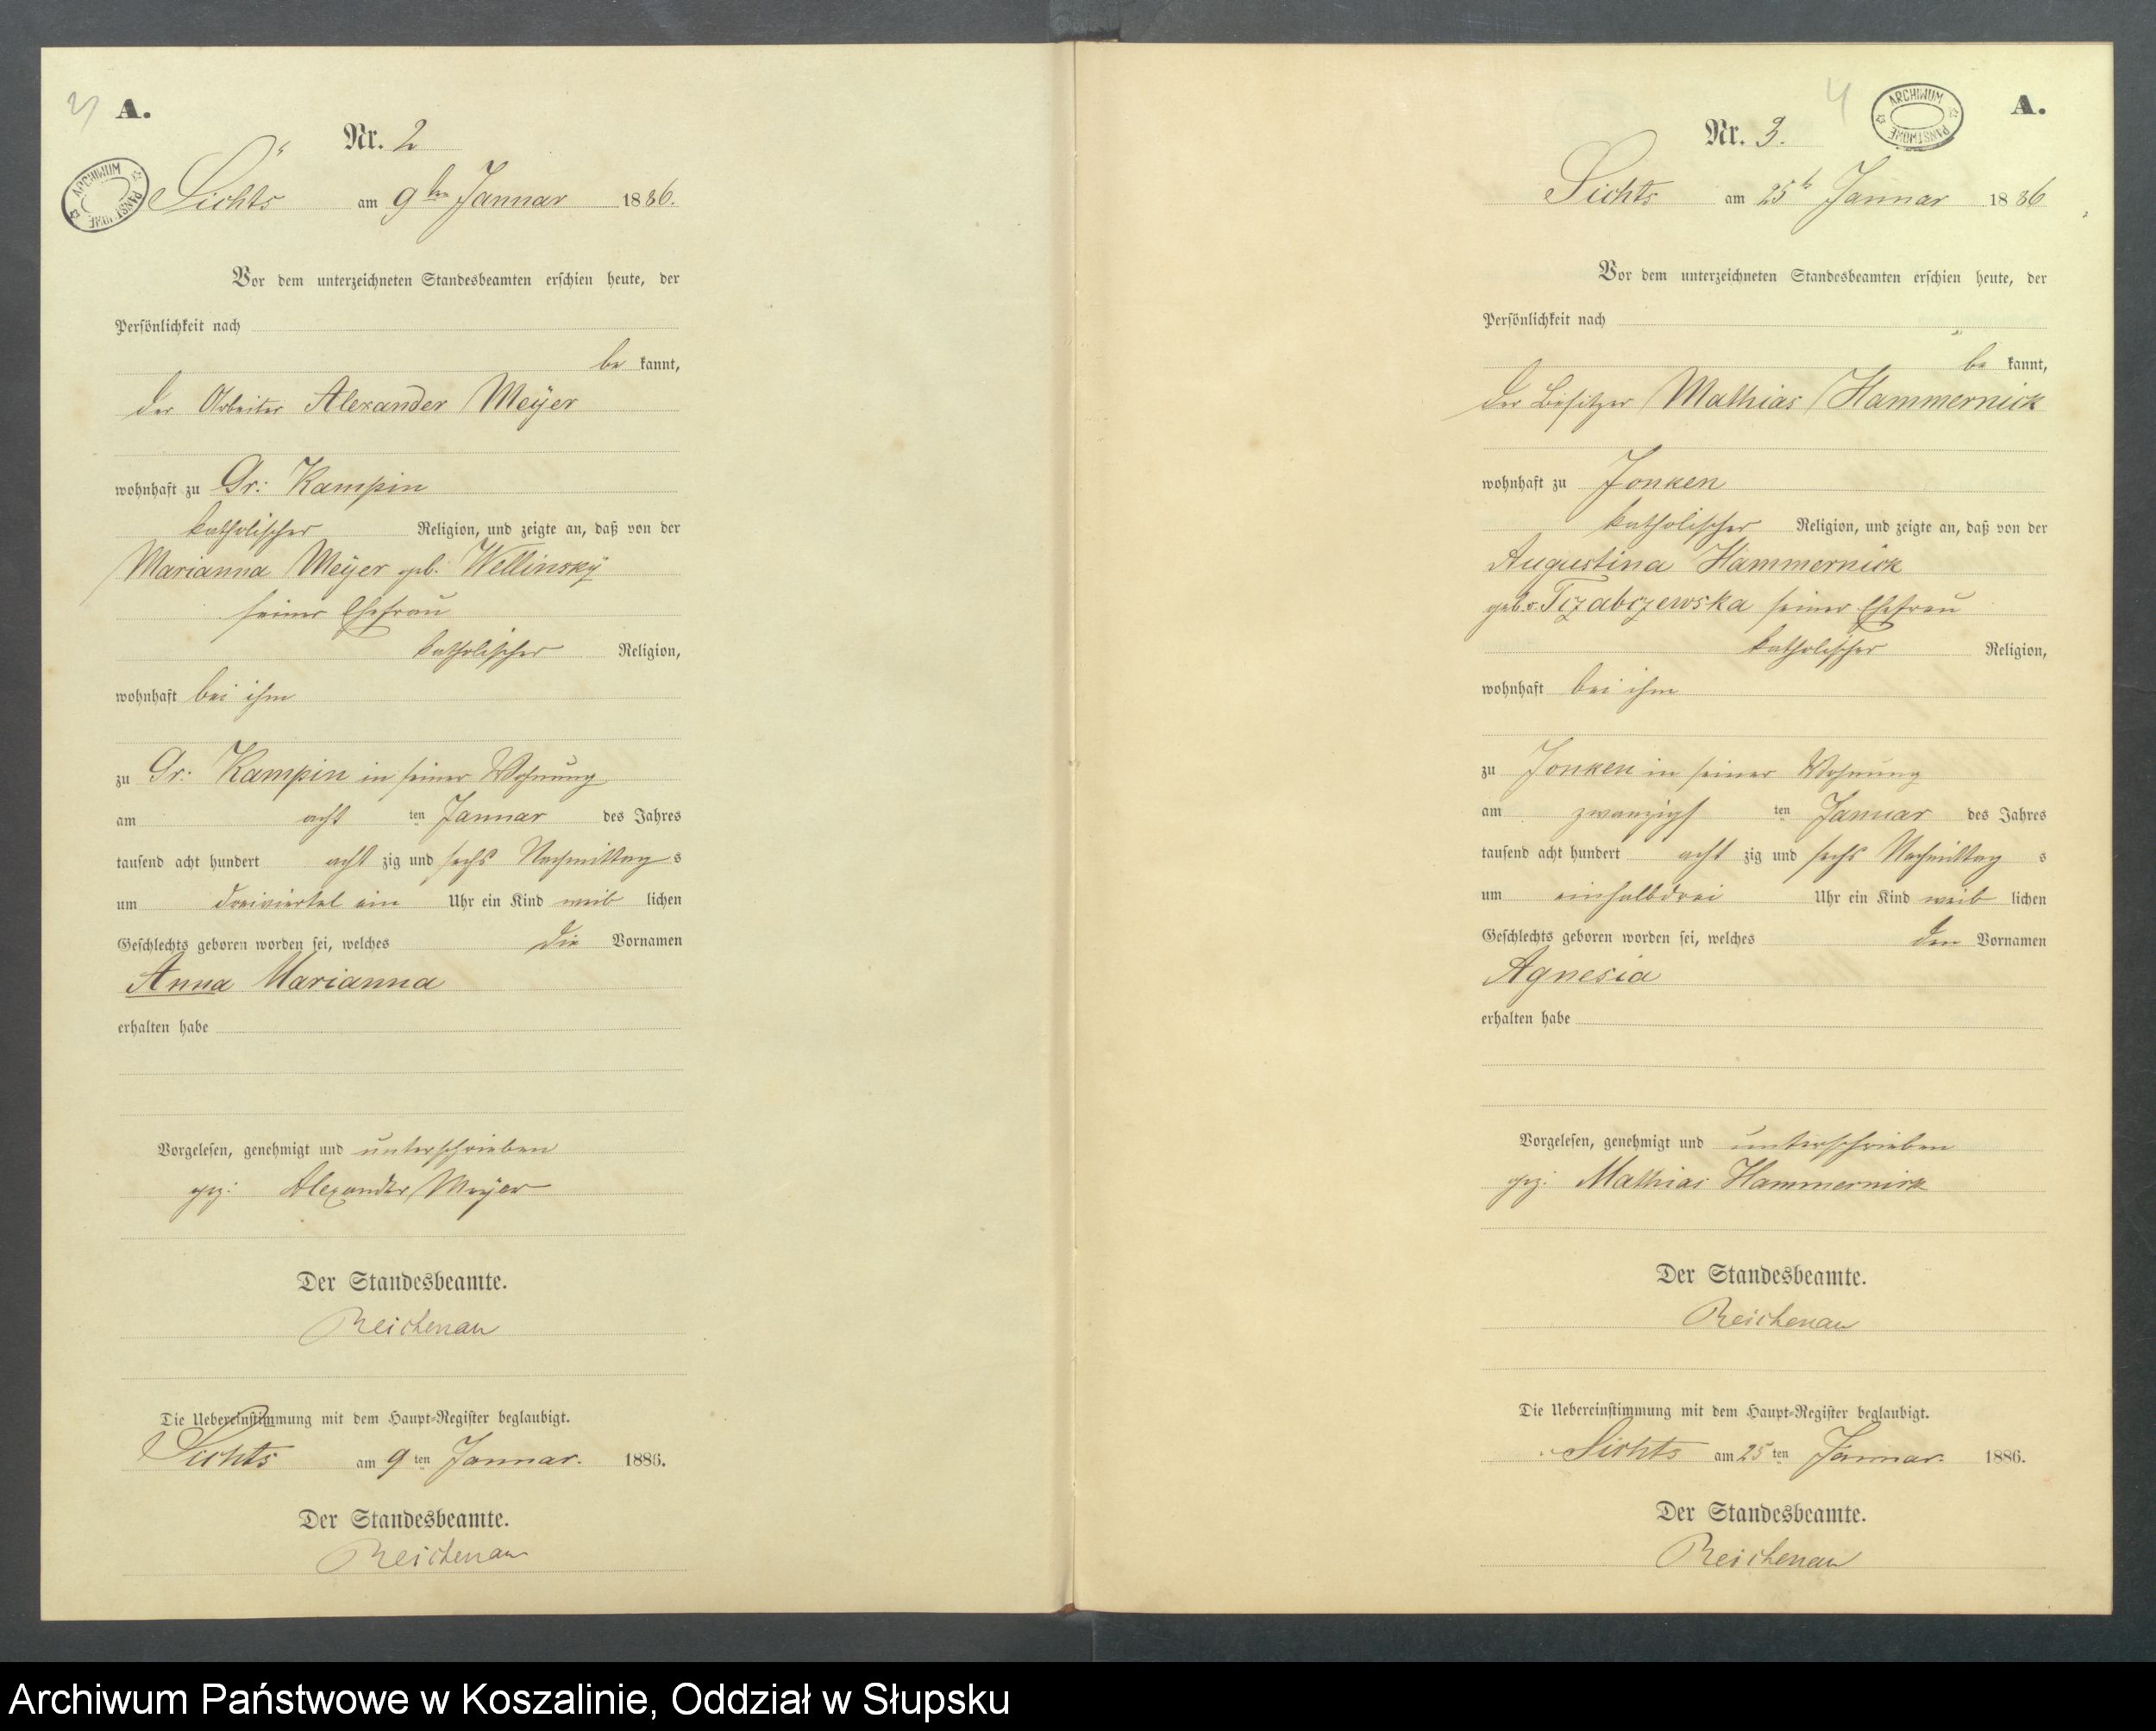 3
A.
Nr. 2
Sichts am 9ten Januar 1886.
Vor dem unterzeichneten Standesbeamten erschien heute, der
Persönlichkeit nach
be kannt,
der Arbeiter Alexander Meÿer
wohnhaft zu Gr: Kampin
katholischer Religion, und zeigte an, daß von der
Marianna Meÿer geb. Wellinskÿ
seiner Ehefrau
katholischer Religion,
wohnhaft bei ihm
zu Gr: Kampin in seiner Wohnung
am acht ten Januar des Jahres
tausend acht hundert acht zig und sechs Nachmittag s
um dreiviertel ein Uhr ein Kind weib lichen
Geschlechts geboren worden sei, welches die Vornamen
Anna Marianna
erhalten habe
Vorgelesen, genehmigt und unterschrieben
gez: Alexander Meÿer
Der Standesbeamte.
Reichenau
Die Uebereinstimmung mit dem Haupt-Register beglaubigt.
Sichts am 9 ten Januar. 1886.
Der Standesbeamte.
Reichenau
ARCHIWUM PAŃSTWOWE
4
ARCHIWUM PAŃSTWOWE
A.
Nr. 3.
Sichts am 25t Januar 1886
Vor dem unterzeichneten Standesbeamten erschien heute, der
Persönlichkeit nach
be kannt,
der Besitzer Mathias Hammernick
wohnhaft zu Jonken
katholischer Religion, und zeigte an, daß von der
Augustina Hammernick
geb. v. Tczabczewska seiner Ehefrau
katholischer Religion,
wohnhaft bei ihm
zu Jonken in seiner Wohnung
am zwanzigs ten Januar des Jahres
tausend acht hundert acht zig und sechs Nachmittag s
um einhalbdrei Uhr ein Kind weib lichen
Geschlechts geboren worden sei, welches den Vornamen
Agnesia
erhalten habe
Vorgelesen, genehmigt und unterschrieben
gez: Mathias Hammernick
Der Standesbeamte.
Reichenau
Die Uebereinstimmung mit dem Haupt-Register beglaubigt.
Sichts am 25 ten Januar. 1886.
Der Standesbeamte.
Reichenau
Archiwum Państwowe w Koszalinie, Oddział w Słupsku